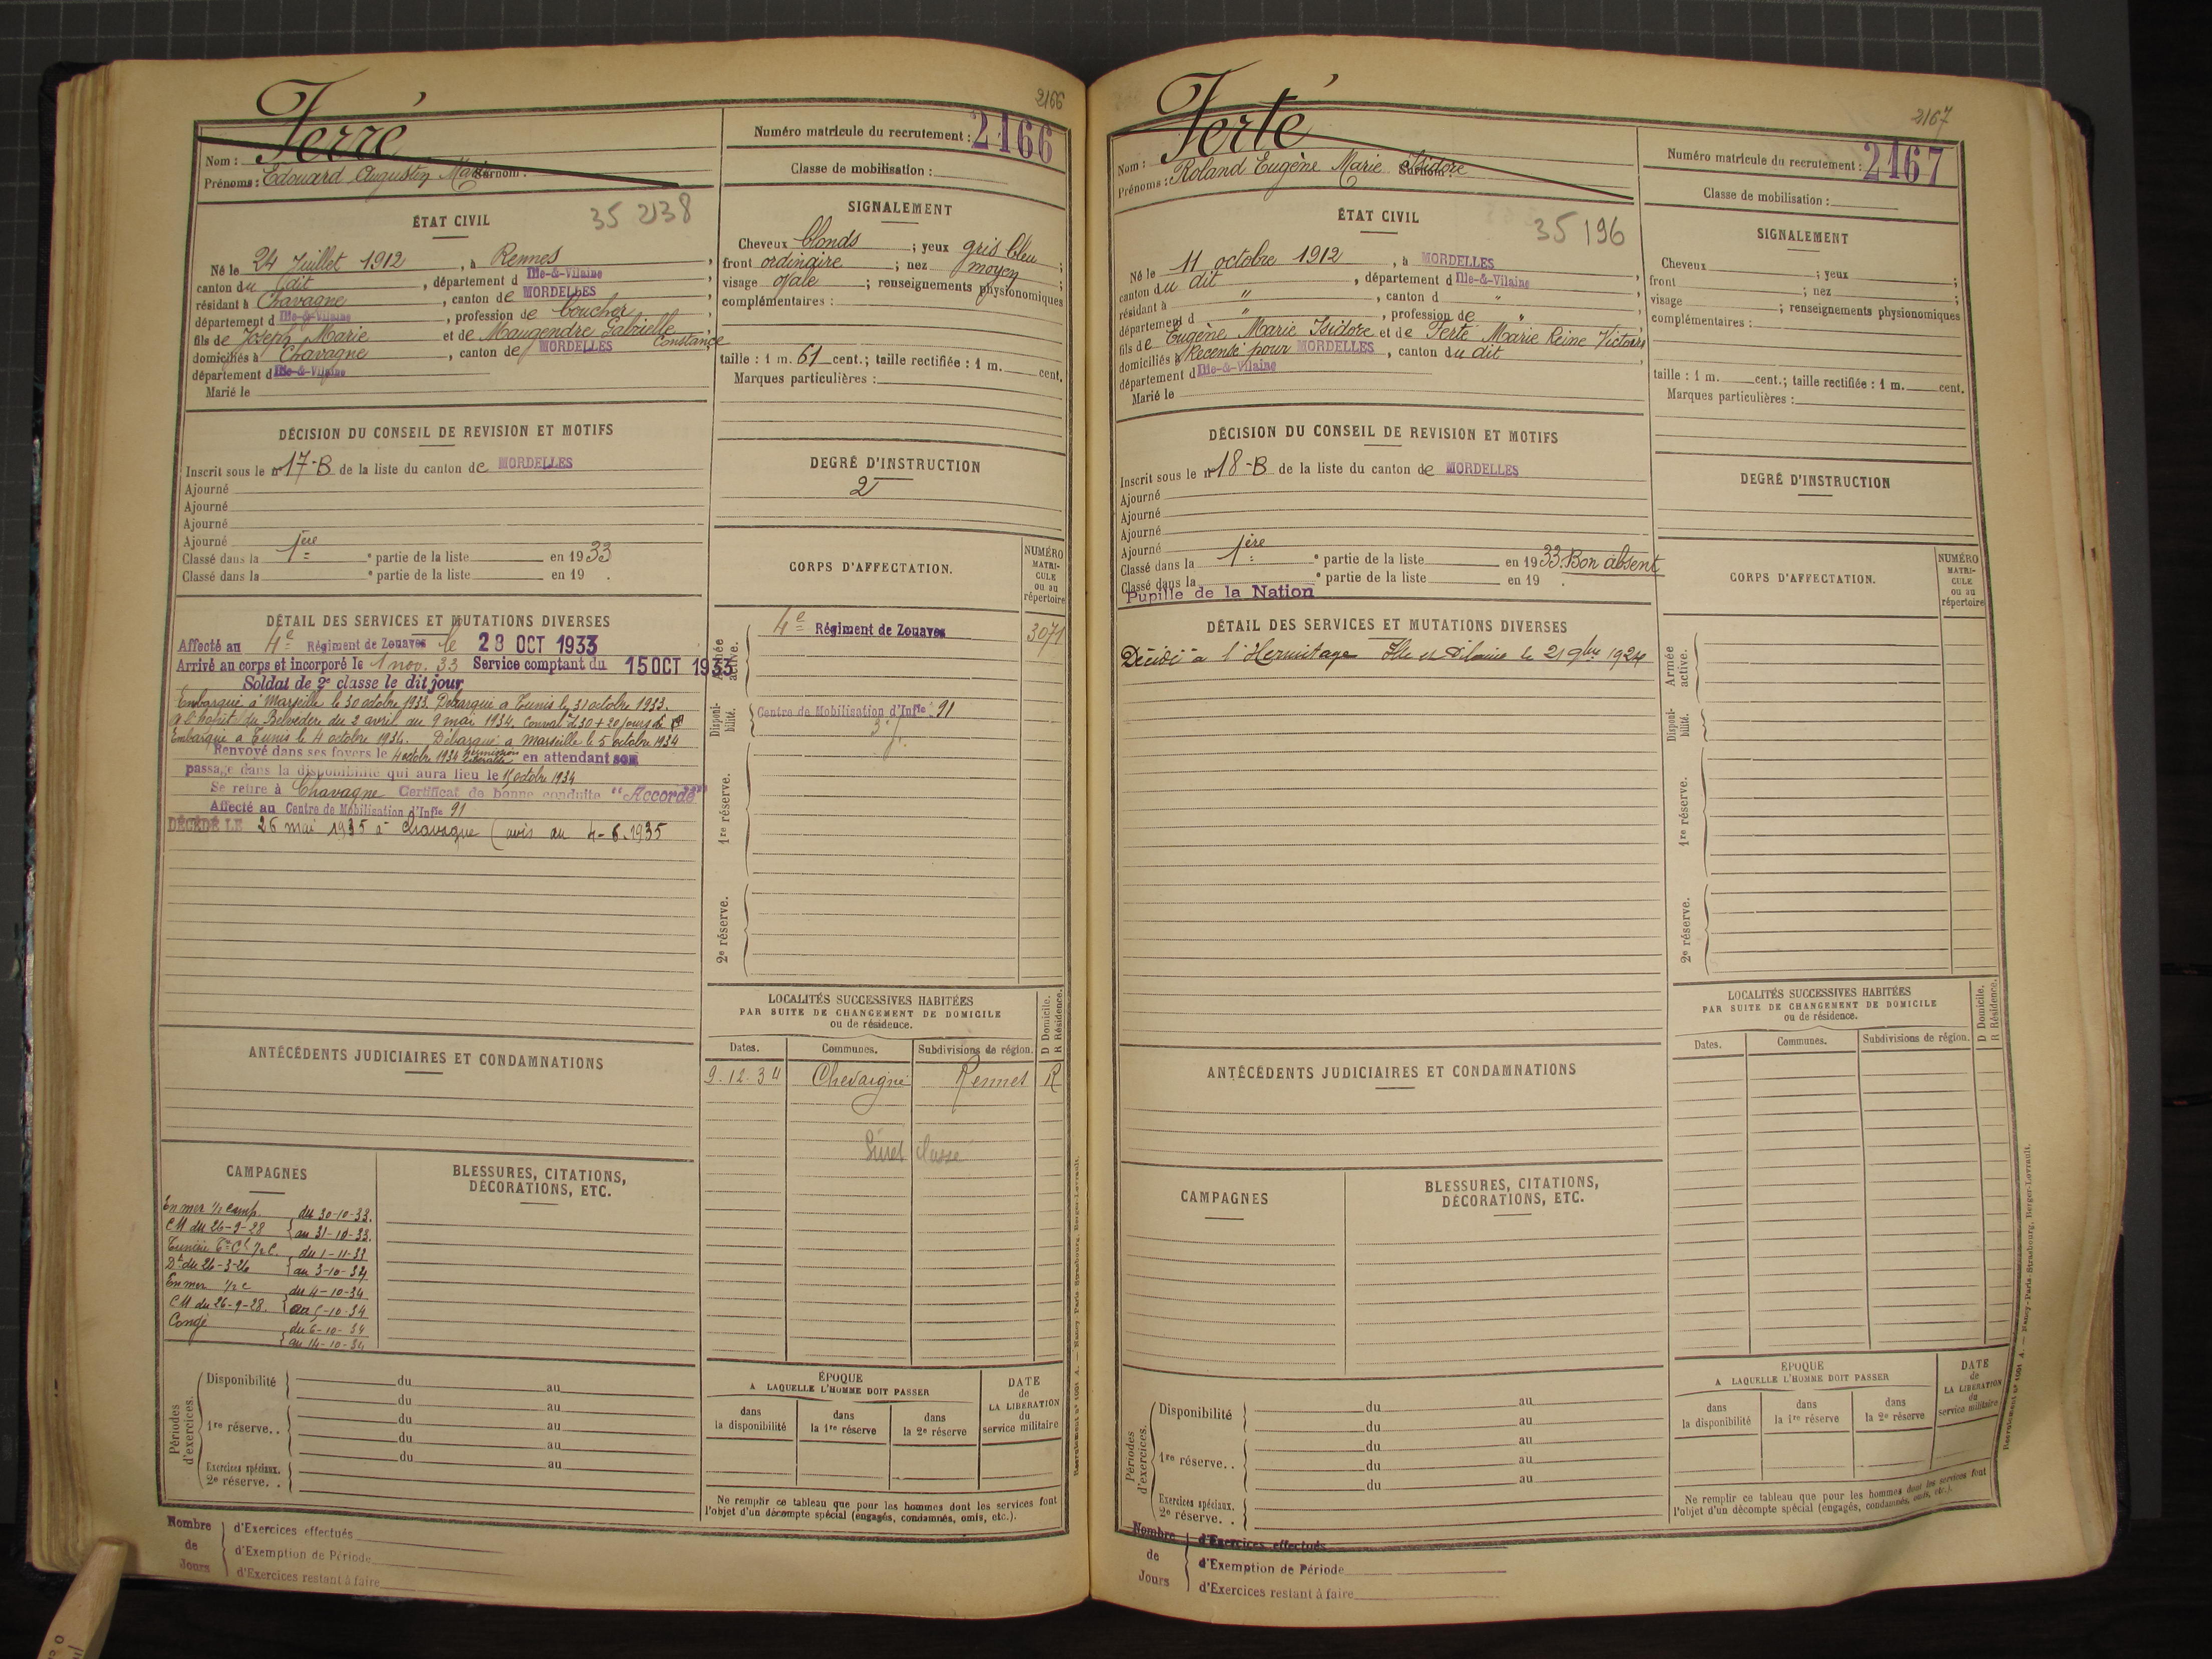 2166
Ferré
Nom :
Prénoms : Edouard Augustin Marie Surnom :
Numéro matricule du recrutement : 2166
Classe de mobilisation :
ÉTAT CIVIL
35 2138
Né le 24 Juillet 1912, à Rennes,
canton du dit, département d Ille-&-Vilaine
résidant à Chavagne, canton de MORDELLES,
département d Ille-&-Vilaine, profession de boucher,
fils de Joseph Marie et de Maugendre Gabrielle Constance,
domiciliés à Chavagne, canton de MORDELLES
département d Ille-&-Vilaine
Marié le
SIGNALEMENT
Cheveux blonds ; yeux gris bleu ;
front ordinaire ; nez moyen ;
visage ovale ; renseignements physionomiques
complémentaires :
taille : 1 m. 61 cent.; taille rectifiée : 1 m. cent.
Marques particulières :
DÉCISION DU CONSEIL DE REVISION ET MOTIFS
Inscrit sous le n° 17-B de la liste du canton de MORDELLES
Ajourné
Ajourné
Ajourné
Ajourné
Classé dans la 1ère partie de la liste en 1933
Classé dans la e partie de la liste en 19 .
DEGRÉ D'INSTRUCTION
2
DÉTAIL DES SERVICES ET MUTATIONS DIVERSES
Affecté au 4e Régiment de Zouaves le 28 OCT 1933
Arrivé au corps et incorporé le 1 nov. 33 Service comptant du 15 OCT 1933
Soldat de 2e classe le dit jour
Embarqué à Marseille le 30 octobre 1933. Débarqué à Tunis le 31 octobre 1933.
à l'hopit. du Belvédère du 2 avril au 9 mai 1934. Conval. d 30 + 20 jours
Embarqué à Tunis le 4 octobre 1934. Débarqué à Marseille le 5 octobre 1934
Renvoyé dans ses foyers le 4 octobre 1934 permission libérable en attendant son
passage dans la disponibilité qui aura lieu le 15 octobre 1934
Se retire à Chavagne Certificat de bonne conduite "Accordé"
Affecté au Centre de Mobilisation d'Infie 91
DÉCÉDÉ LE 26 mai 1935 à Chavagne (avis du 4-6-1935
CORPS D'AFFECTATION.
NUMÉRO MATRICULE ou au répertoire
Armée active.
4e Régiment de Zouaves 3071
Disponibilité.
Centre de Mobilisation d'Infie 91
1re réserve.
2e réserve.
LOCALITÉS SUCCESSIVES HABITÉES
PAR SUITE DE CHANGEMENT DE DOMICILE
ou de résidence.
D Domicile.
R Résidence.
Dates. Communes. Subdivisions de région.
9.12.34 Chevaigné Rennes R
classe
ANTÉCÉDENTS JUDICIAIRES ET CONDAMNATIONS
CAMPAGNES
En mer 1/2 camp. du 30-10-33.
CM du 26-9-28 au 31-10-33.
Tunisie 1/2 C. du 1-11-33
Dt du 26-3-26 au 3-10-34
En mer 1/2 c du 4-10-34
CM du 26-9-28. au 5-10-34
Congé du 6-10-34
au 14-10-34
BLESSURES, CITATIONS,
DÉCORATIONS, ETC.
Périodes d'exercices.
Disponibilité du au
du au
1re réserve.. du au
du au
du au
Exercices spéciaux.
2e réserve. .
ÉPOQUE
A LAQUELLE L'HOMME DOIT PASSER
dans la disponibilité
dans la 1re réserve
dans la 2e réserve
DATE de LA LIBÉRATION du service militaire
Ne remplir ce tableau que pour les hommes dont les services font
l'objet d'un décompte spécial (engagés, condamnés, omis, etc.).
Nombre de Jours
d'Exercices effectués
d'Exemption de Période
d'Exercices restant à faire
2167
Ferté
Nom :
Prénoms : Roland Eugène Marie Isidore Surnom
Numéro matricule du recrutement : 2167
Classe de mobilisation :
ÉTAT CIVIL
35 196
Né le 11 octobre 1912, à MORDELLES
canton du dit, département d Ille-&-Vilaine,
résidant à ", canton d ",
département d ", profession de ",
fils de Eugène Marie Isidore et de Ferté Marie Reine Victoire
domiciliés à Recensé pour MORDELLES, canton du dit,
département d Ille-&-Vilaine
Marié le
SIGNALEMENT
Cheveux ; yeux ;
front ; nez ;
visage ; renseignements physionomiques
complémentaires :
taille : 1 m. cent.; taille rectifiée : 1 m. cent.
Marques particulières :
DÉCISION DU CONSEIL DE REVISION ET MOTIFS
Inscrit sous le n° 18-B de la liste du canton de MORDELLES
Ajourné
Ajourné
Ajourné
Ajourné
Classé dans la 1ère partie de la liste en 1933. Bon absent
Classé dans la e partie de la liste en 19 .
Pupille de la Nation
DEGRÉ D'INSTRUCTION
DÉTAIL DES SERVICES ET MUTATIONS DIVERSES
Décédé à l'Hermitage Ille et Vilaine le 21 9bre 1924
CORPS D'AFFECTATION.
NUMÉRO MATRICULE ou au répertoire
Armée active.
Disponibilité.
1re réserve.
2e réserve.
LOCALITÉS SUCCESSIVES HABITÉES
PAR SUITE DE CHANGEMENT DE DOMICILE
ou de résidence.
D Domicile.
R Résidence.
Dates. Communes. Subdivisions de région.
ANTÉCÉDENTS JUDICIAIRES ET CONDAMNATIONS
CAMPAGNES
BLESSURES, CITATIONS,
DÉCORATIONS, ETC.
Périodes d'exercices.
Disponibilité du au
du au
1re réserve. . du au
du au
du au
Exercices spéciaux.
2e réserve. .
ÉPOQUE
A LAQUELLE L'HOMME DOIT PASSER
dans la disponibilité
dans la 1re réserve
dans la 2e réserve
DATE de LA LIBÉRATION du service militaire
Ne remplir ce tableau que pour les hommes dont les services font
l'objet d'un décompte spécial (engagés, condamnés, omis, etc.).
Nombre de Jours
d'Exercices effectués
d'Exemption de Période
d'Exercices restant à faire